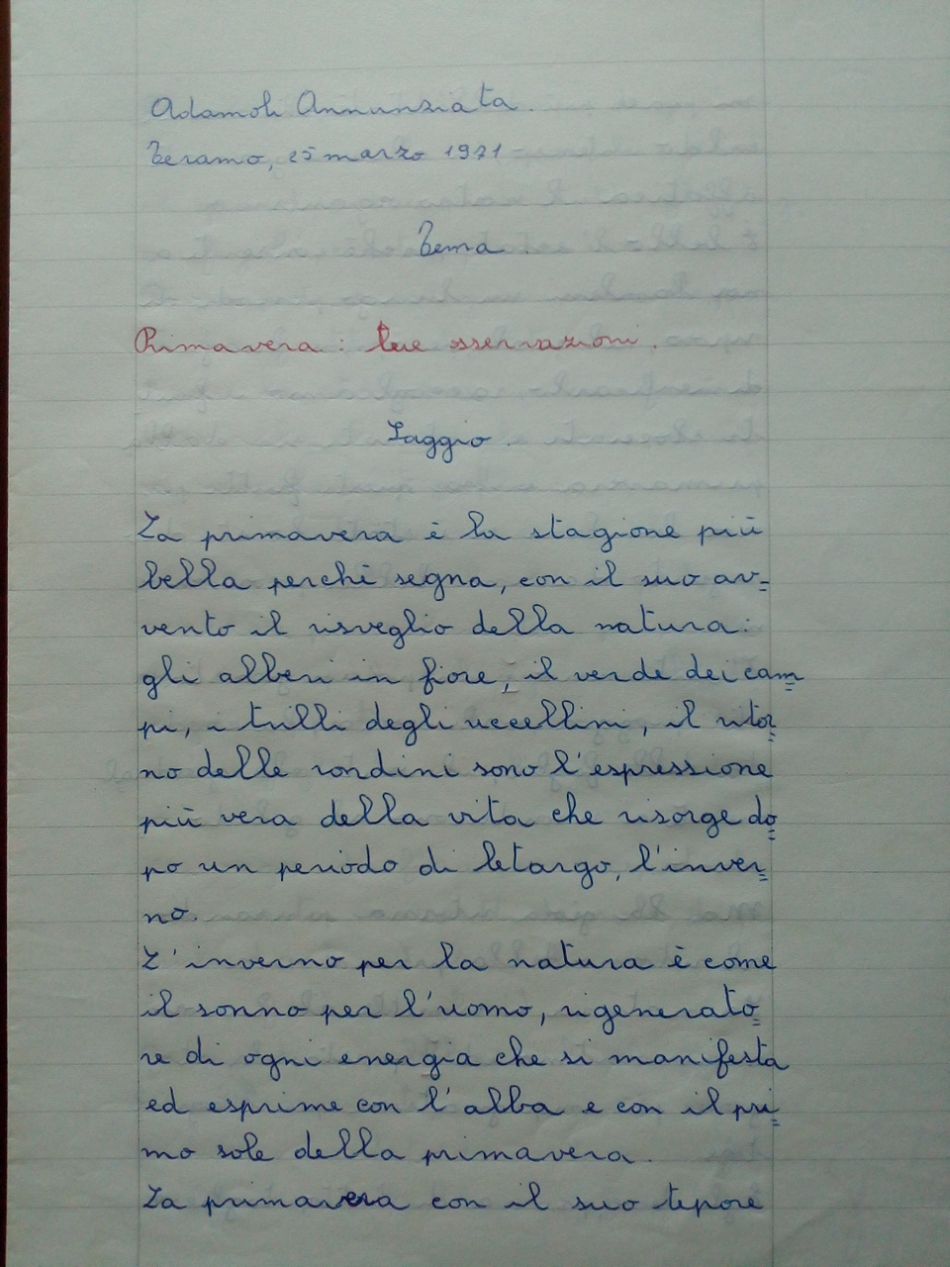 Adamoli Annunziata.
Teramo, 25 marzo 1971
Tema.
Primavera: tue osservazioni.
Saggio.
La primavera è la stagione più
bella perchè segna, con il suo av=
vento il risveglio della natura:
gli alberi in fiore, il verde dei cam=
pi, i trilli degli uccellini, il ritor=
no delle rondini sono l'espressione
più vera della vita che risorge do=
po un periodo di letargo, l'inver=
no.
L'inverno per la natura è come
il sonno per l'uomo, rigenerato=
re di ogni energia che si manifesta
ed esprime con l'alba e con il pri=
mo sole della primavera.
La primavera con il suo tepore